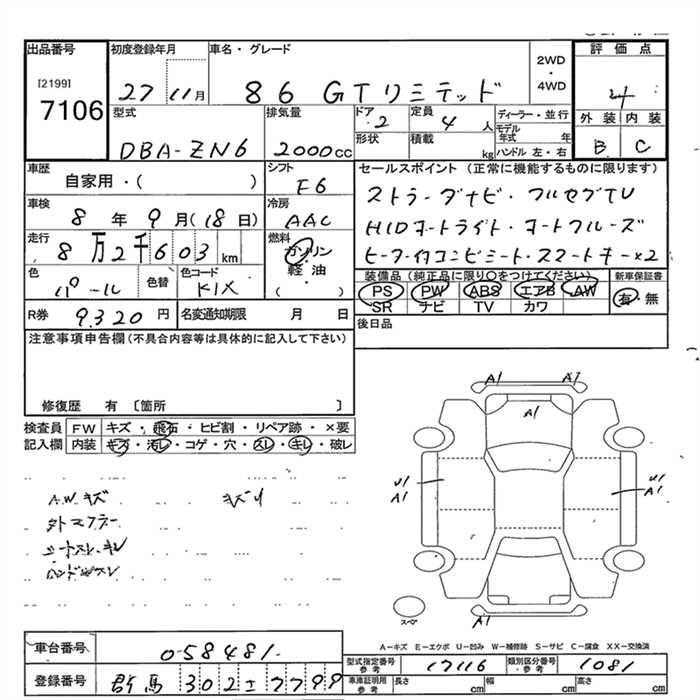 出品番号
[2199]
7106
初度登録年月
27 11月
車名・グレード
86 GTリミテッド
2WD
・
4WD
評価点
4
外装 内装
B C
型式
DBA-ZN6
排気量
2000cc
ドア
2
定員
4人
形状
積載
kg
ディーラー・並行
モデル年式 年
ハンドル 左・右
車歴
自家用・( )
シフト
F6
セールスポイント (正常に機能するものに限ります)
ストラーダナビ・フルセグTV
HIDオートライト・オートクルーズ
ヒーター付コンビシート・スマートキー×2
車検
8年 9月(18日)
冷房
AAC
走行
8万2千603km
燃料
ガソリン
・
軽油
( )
色
パール
色替
色コード
K1X
装備品 (純正品に限り○をつけてください)
PS PW ABS エアB AW
SR ナビ TV カワ
新車保証書
有・無
R券 9320円
名変通知期限 月 日
後日品
注意事項申告欄 (不具合内容等は具体的に記入して下さい)
修復歴 有 〔箇所 〕
検査員 FW キズ・飛石・ヒビ割・リペア跡・×要
記入欄 内装 キズ・汚レ・コゲ・穴・スレ・キレ・破レ
A.W キズ キズリ
外マフラー
シートスレ・キレ
ハンドルスレ
A1 A1
A1
U1 U1
A1 A1
A1
スペア
A-キズ E-エクボ U-凹み W-補修跡 S-サビ C-腐食 XX-交換済
車台番号 058481
登録番号 群馬 302 ± 7799
型式指定番号 参考 17116
類別区分番号 参考 1081
車庫証明用 参考 長さ cm 幅 cm 高さ cm